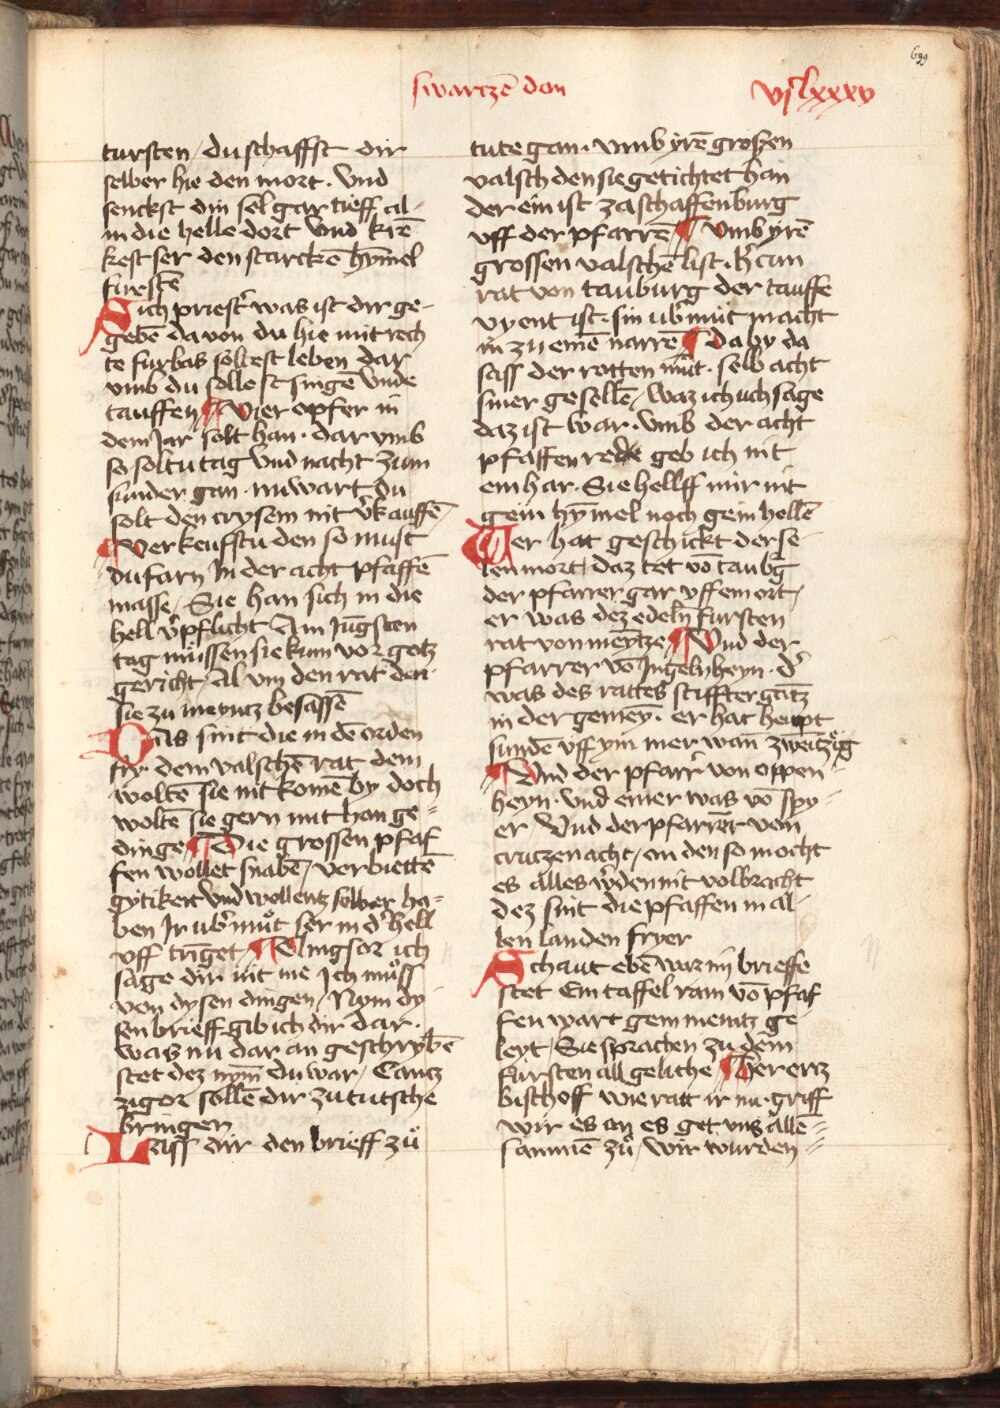 699
swartzē don
vjᶜlxxxv
tursten / du schaffst dir
selber hie den mort · Vnd
senckst din sel gar tieff al-
in die helle dort Vnd krē
kest ser den starckē hȳmel
furstē
Sich priestʼ was ist dir ge-
gebē da von du hie mit rech
te furbas soltest leben dar
vmb du solle st singē Vnde
tauffen ¶ Vier opfer in
dem Jar solt han · dar vmb
so soltu tag Vnd nacht zum
sunder gan · nu wart du
solt den crysem nit v̓kauffē
¶ Verkeufstu den so must
du farn In der acht pfaffē
masse / Sie han sich in die
hell v̓pflicht Am Jūgsten
tag mussen sie kum vor gotz
gericht / Al vm den rat den
sie zu meyntz besassē
Das sint die in dē orden
fry · dem valschē rat dem
woltē sie nit komē by doch
woltē sie gern mit han ge-
dinge ¶ Die grossen pfaf
fen wollet snabē / verbiettē
gytikeit Vnd wollent selber ha-
ben Ir ub̓ muͦt ser in d̓ hell
vff tringet ¶ Clingsor ich
sage dir nit me Ich muͦss
von dysen dingen / Nym dy
sen brieff gib ich dir dar ·
was nu dar an geschrybē
stet dez nym̄ du war / Cantz
zigor sollē dir zu tutsche
bringen
Liss dir den brieff zuͦ
tute gan · vmb yrē grossen
valsch den sie getichtet han
der ein ist zaschaffenburg
vff der pfarrē ¶ Vmb yrē
grossen valschē list · h̓ cun
rat von tauburg der tauffe
vyent ist · sin ub̓mut macht
in zu einē narrē ¶ da by da
sass der rotten mut · selb acht
siner gesellē / Waz ich uch sage
daz ist war · vmb der acht
pfaffen rede geb ich nit
ein har · Sie hellff mir nit
gein hȳmel noch gein hellē
Wer hat geschickt der se-
len mort / daz tet vō taubg̓
der pfarrer gar vff ein ort /
er was dez edeln fursten
rat von mentze ¶ Vnd der
pfarrer vō Ingelnheyn · d̓
was des rattes stiffter gātz
in der gemey · er hat heupt
sundē vff ym mer wan zwentzig
¶ Vnd der pfarr̓ von oppen-
heyn · vnd einer was vō spy-
er / Vnd der pfarrer von
crutzenacht / on den so mocht
es alles w̓den nit volbracht
dez sint die pfaffen in al-
len landen fryer
Schaut ebē waz im brieffe
stet Ein taffel ram vō pfaf
fen wart gein mentz ge-
leyt / Sie sprachen zu dem
fursten all geliche ¶ Her ertz
bischoff wie ratt ir nu · griff
wir es an es get vns alle-
sammē zuͦ / wir wurden